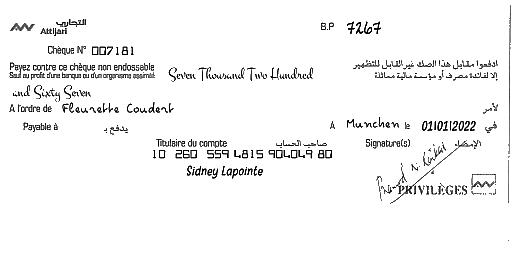 التجاري
Attijari
B.P 7267
Chèque N° 007181
Payez contre ce chèque non endossable
Sauf au profit d'une banque ou d'un organisme assimilé
Seven Thousand Two Hundred
ادفعوا مقابل هذا الصك غير القابل للتظهير
إلا لفائدة مصرف أو مؤسسة مالية مماثلة
and Sixty Seven
A l'ordre de Fleurette Coudert
لأمر
Payable à يدفع بـ
A Munchen le 01/01/2022 في
Titulaire du compte صاحب الحساب
Signature(s) الإمضاء
10 260 559 4815 904049 80
Sidney Lapointe
PRIVILÈGES